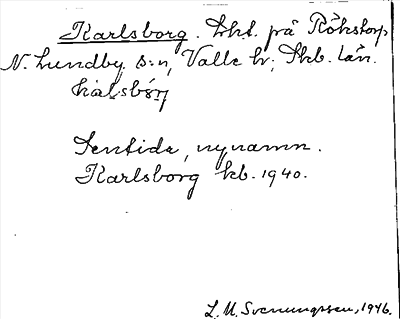 Karlsborg. Lht. på Rökstorp
N. Lundby s:n, Valle hr; Skb. län.
Sentida, nynamn.
Karlsborg kb. 1940.
L. M. Svenungsson, 1946.